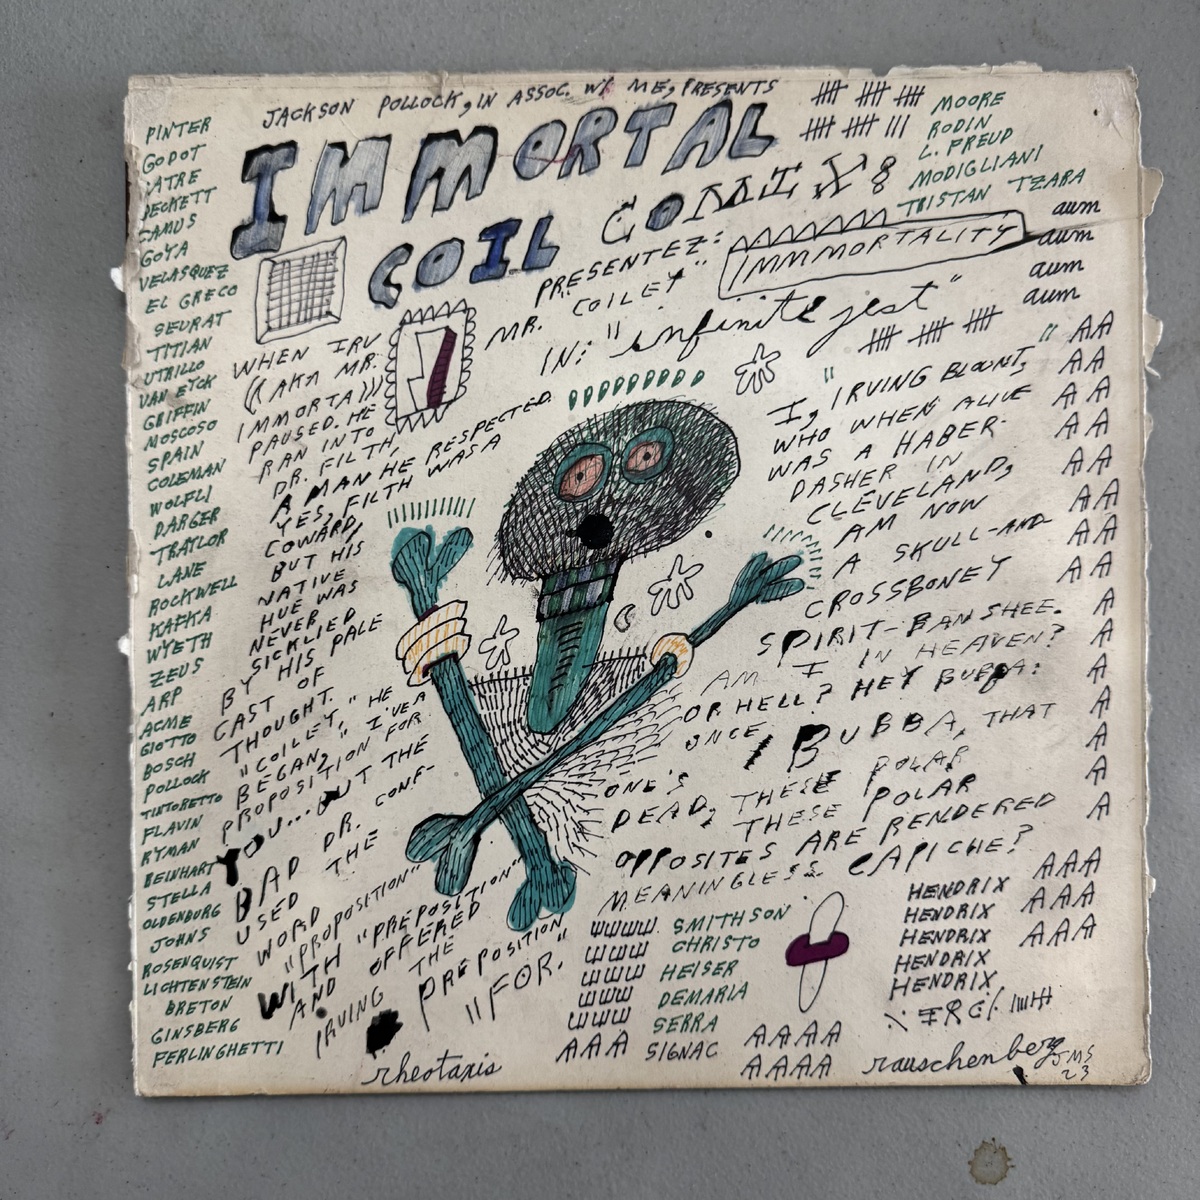 JACKSON POLLOCK, IN ASSOC. W/ ME, PRESENTS
IMMORTAL
COIL COMIX
PRESENTEZ:
MR. "COILEY" IMMMORTALITY
IN: "infinite jest"
PINTER
GODOT
BECKETT
CAMUS
GOYA
VELASQUEZ
EL GRECO
SEURAT
TITIAN
UTRILLO
VAN EYCK
GRIFFIN
MOSCOSO
SPAIN
COLEMAN
WOLFLI
DARGER
TRAYLOR
LANE
ROCKWELL
KAFKA
WYETH
ZEUS
ARP
ACME
GIOTTO
BOSCH
POLLOCK
TINTORETTO
FLAVIN
RYMAN
REINHART
STELLA
OLDENBURG
JOHNS
ROSENQUIST
LICHTENSTEIN
BRETON
GINSBERG
FERLINGHETTI
MOORE
RODIN
L. FREUD
MODIGLIANI
TRISTAN TZARA
aum
aum
aum
aum
WHEN IRV
((AKA MR.
IMMORTAL)))
PAUSED. HE
RAN INTO
DR. FILTH,
A MAN HE RESPECTED.
YES, FILTH WAS A
COWARD,
BUT HIS
NATIVE
HUE WAS
NEVER
SICKLIED
BY HIS PALE
CAST OF
THOUGHT.
"COILEY," HE
BEGAN, "I'VE A
PROPOSITION FOR
YOU... BUT THE
BAD DR. CONF-
USED THE
WORD
"PROPOSITION"
WITH "PREPOSITION"
AND OFFERED
IRVING THE
PREPOSITION
"FOR."
"I, IRVING BLOUNT,
WHO WHEN ALIVE
WAS A HABER-
DASHER IN
CLEVELAND,
AM NOW
A SKULL-AND-
CROSSBONEY
SPIRIT-BANSHEE.
AM I IN HEAVEN?
OR HELL? HEY BUBBA:
ONCE BUBBA, THAT
ONE'S
DEAD, THESE POLAR
THESE POLAR
OPPOSITES ARE RENDERED
MEANINGLESS. CAPICHE?
" AA
AA
AA
AA
AA
AA
AA
AA
A
A
A
A
A
A
A
AAA
AAA
AAA
HENDRIX
HENDRIX
HENDRIX
HENDRIX
HENDRIX
WWWW SMITHSON
WWW CHRISTO
WWW HEISER
WWW DEMARIA
WWW SERRA
AAA SIGNAC
AAAA
AAAA
rheotaxis
rauschenberg
JMS
23